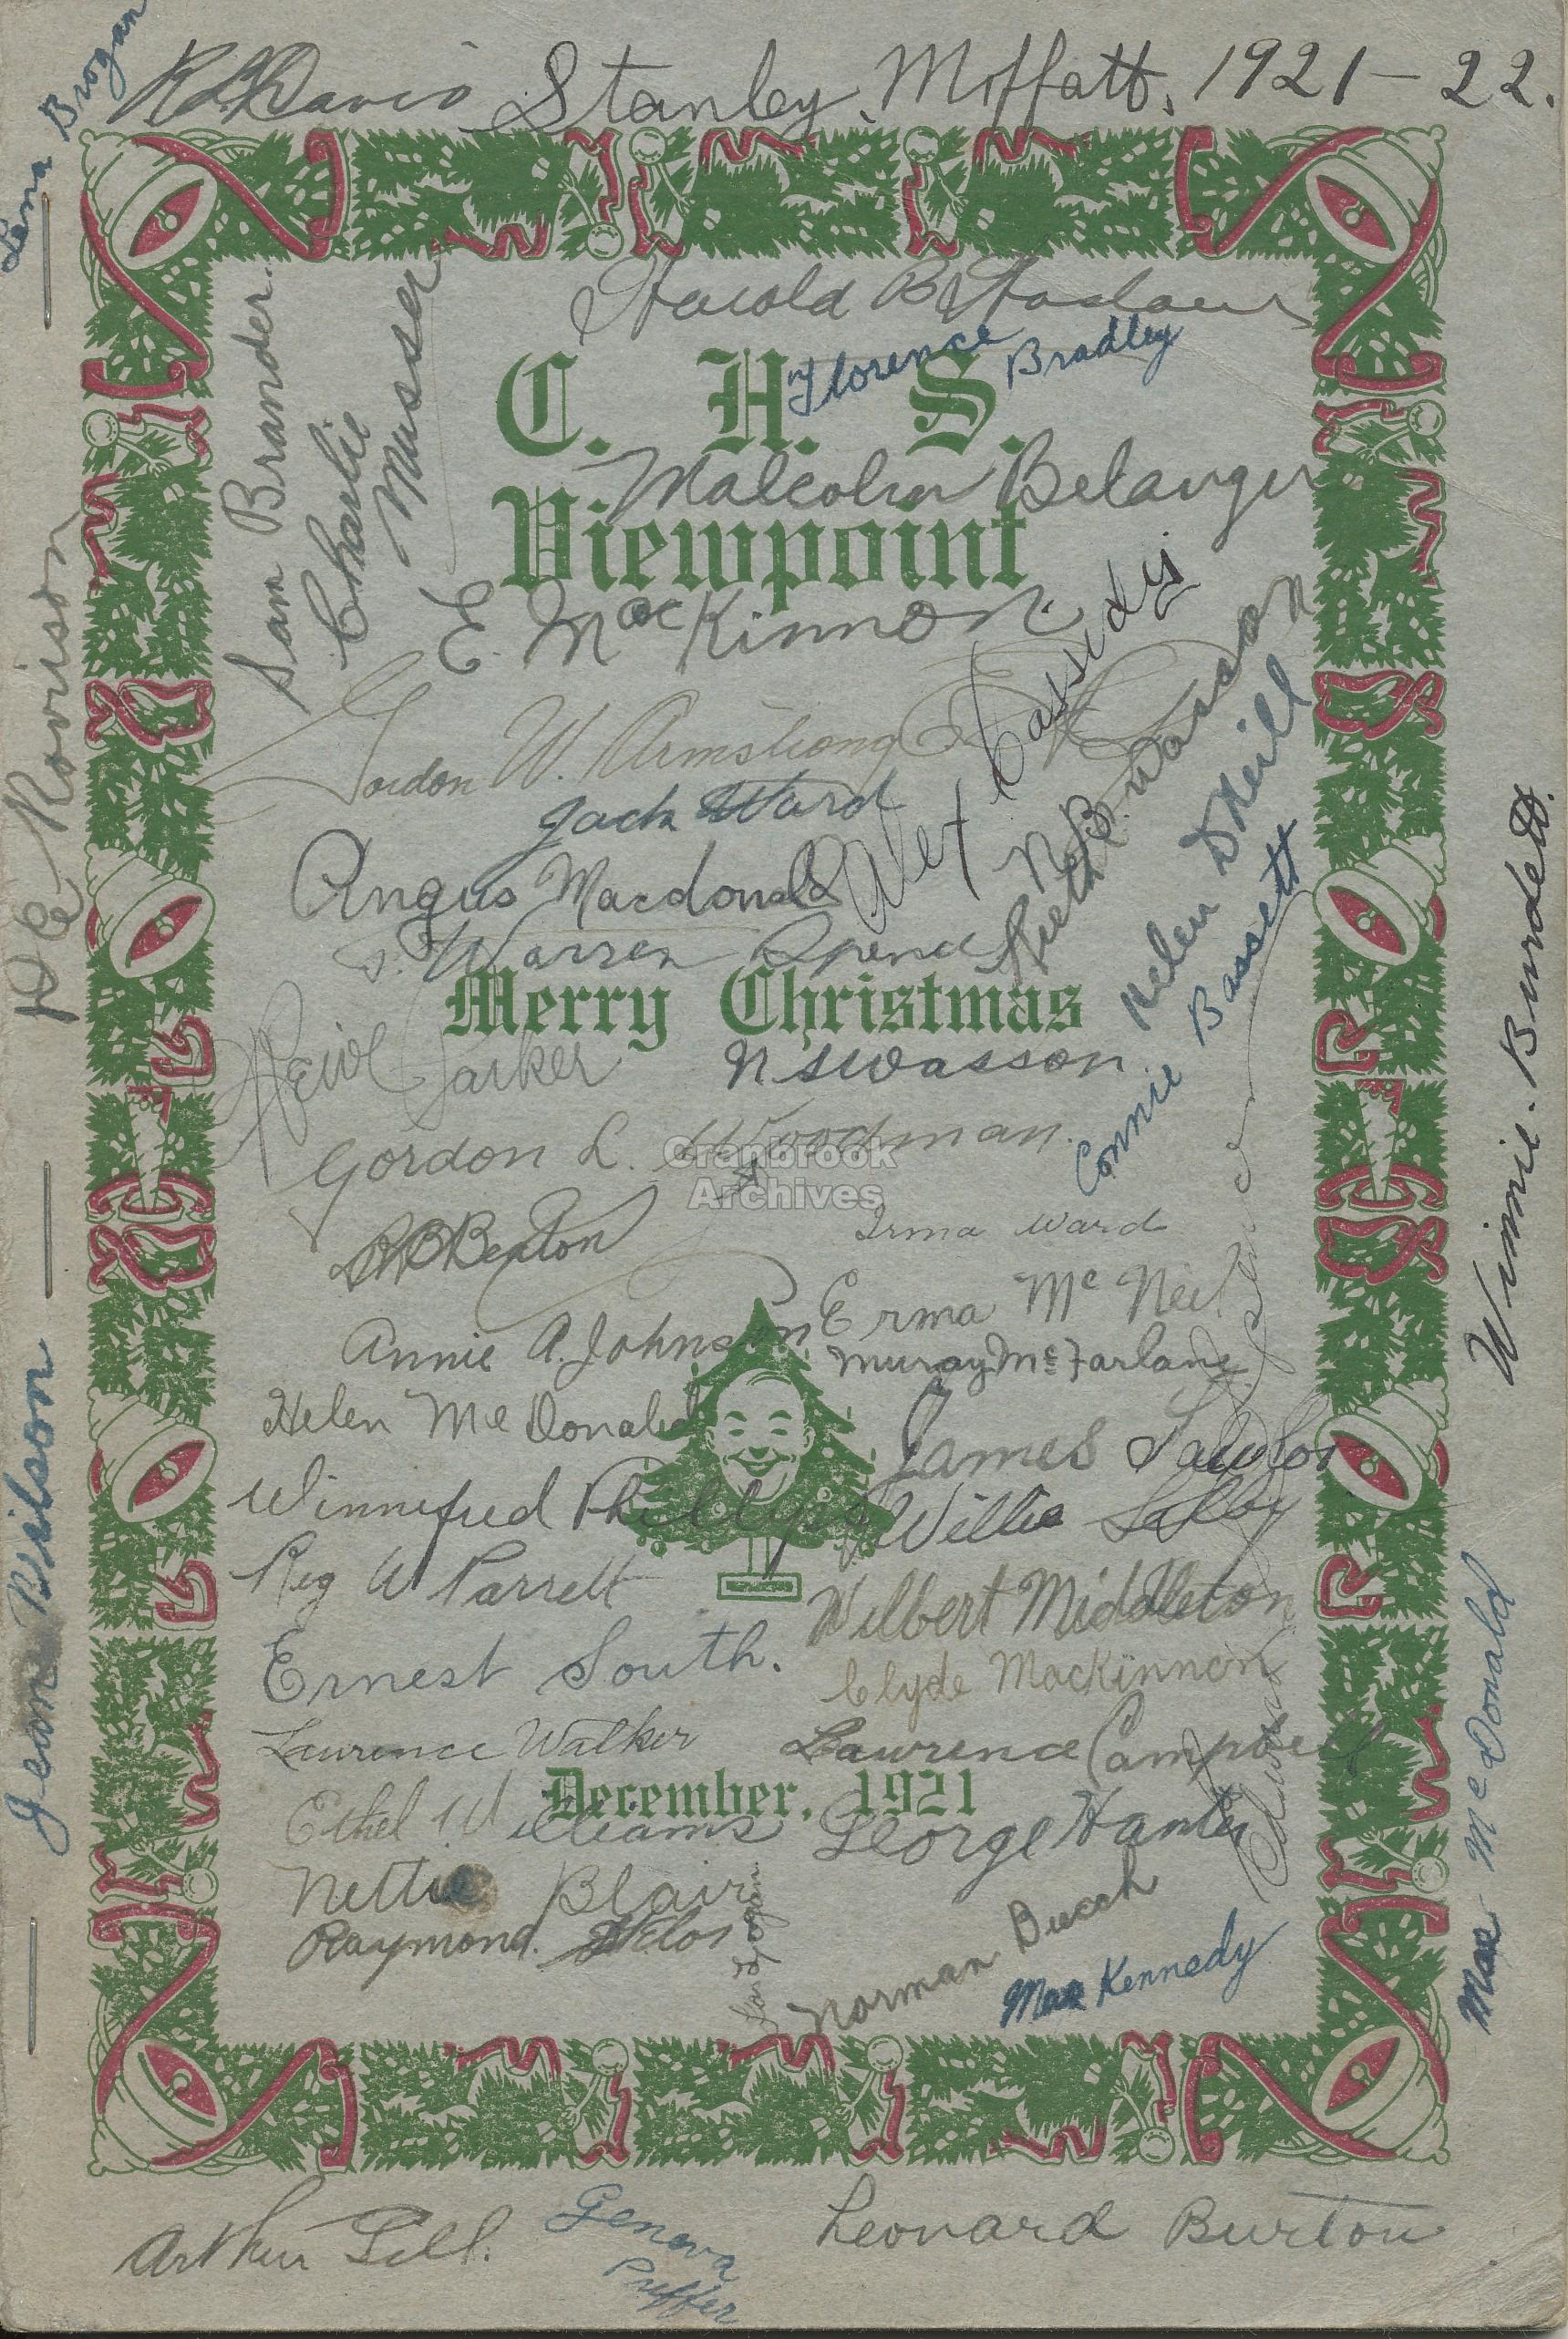 Lena Brogan
Stanley Moffatt. 1921-22.
Sam Brander.
Charlie Musser
Harold B.
Florence Bradley
C. H. S.
Malcolm Belanger
Viewpoint
E. MacKinnon
Alex Cassidy
Gordon W. Armstrong
Jack Ward
N. B. Wasson
Ruth
Helen O'Neill
Connie Bassett
Angus Macdonald
Warren Spence
Merry Christmas
Parker
N S Wasson
Gordon L. Woodman.
Cranbrook
Archives
Beaton
Irma Ward
Annie A. Johnson
Erma McNeil
Murray McFarlane
Helen McDonald
James
Winnifred Phillips
Willie Selby
Reg W Parrett
Wilbert Middleton
Ernest South.
Clyde MacKinnon
Laurence Walker
Lawrence Campbell
December, 1921
Ethel Williams
George Hunter
Nettie Blair
Raymond.
Norman Beech
Mae Kennedy
Edward Spence
D E Morison
Jean Wilson
Winnie. Burdett.
Mae McDonald
Arthur Gill.
Geneva Puffer
Leonard Burton